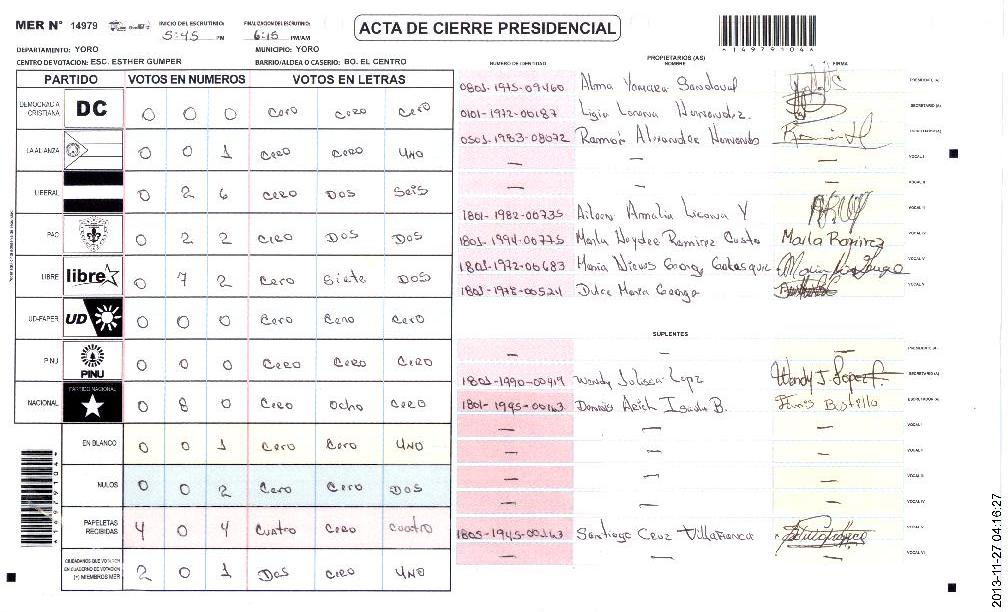 MER N° 14979
INICIO DEL ESCRUTINIO: 5:45 PM
FINALIZACION DEL ESCRUTINIO: 6:15 PM/AM
ACTA DE CIERRE PRESIDENCIAL
149791046
DEPARTAMENTO: YORO
MUNICIPIO: YORO
CENTRO DE VOTACION: ESC. ESTHER GUMPER
BARRIO/ALDEA O CASERIO: BO. EL CENTRO
PARTIDO VOTOS EN NUMEROS VOTOS EN LETRAS
DEMOCRACIA CRISTIANA DC 0 0 0 Cero Cero Cero
LA ALIANZA 0 0 1 Cero Cero UNO
LIBERAL 0 2 6 Cero DOS Seis
PAC 0 2 2 Cero DOS DOS
LIBRE libre 0 7 2 Cero Siete DOS
UD-FAPER UD 0 0 0 Cero Cero Cero
PINU PINU 0 0 0 Cero Cero Cero
NACIONAL PARTIDO NACIONAL 0 8 0 Cero Ocho Cero
EN BLANCO 0 0 1 Cero Cero UNO
NULOS 0 0 2 Cero Cero DOS
PAPELETAS RECIBIDAS 4 0 4 Cuatro Cero Cuatro
CIUDADANOS QUE VOTARON EN CUADERNO DE VOTACION (+) MIEMBROS MER 2 0 1 Dos Cero UNO
PROPIETARIOS (AS)
NUMERO DE IDENTIDAD NOMBRE FIRMA
0801-1975-09460 Alma Yamara Sandoval PRESIDENTE (A)
0101-1972-00187 Ligia Lorena Hernandez. SECRETARIO (A)
0501-1983-08072 Ramón Alexander Hernandez
— — — VOCAL I
— — — VOCAL II
1801-1982-00735 Aileen Amalia Licona Y VOCAL III
1801-1994-00775 Marla Haydee Ramirez Marla Ramirez VOCAL IV
1801-1972-00683 Maria Nieves VOCAL V
1801-1978-00524 Dulce Maria
SUPLENTES
— — — PRESIDENTE (A)
1801-1990-00419 Wendy Julissa Lopez Wendy J. Lopez SECRETARIO (A)
1801-1995-00163 Isaula B. Bustillo ESCRUTADOR (A)
— — — VOCAL I
— — —
— — — VOCAL III
— — — VOCAL IV
1805-1945-00163 Santiago Cruz Villafranca VOCAL V
— — VOCAL VI
2013-11-27 04:16:27